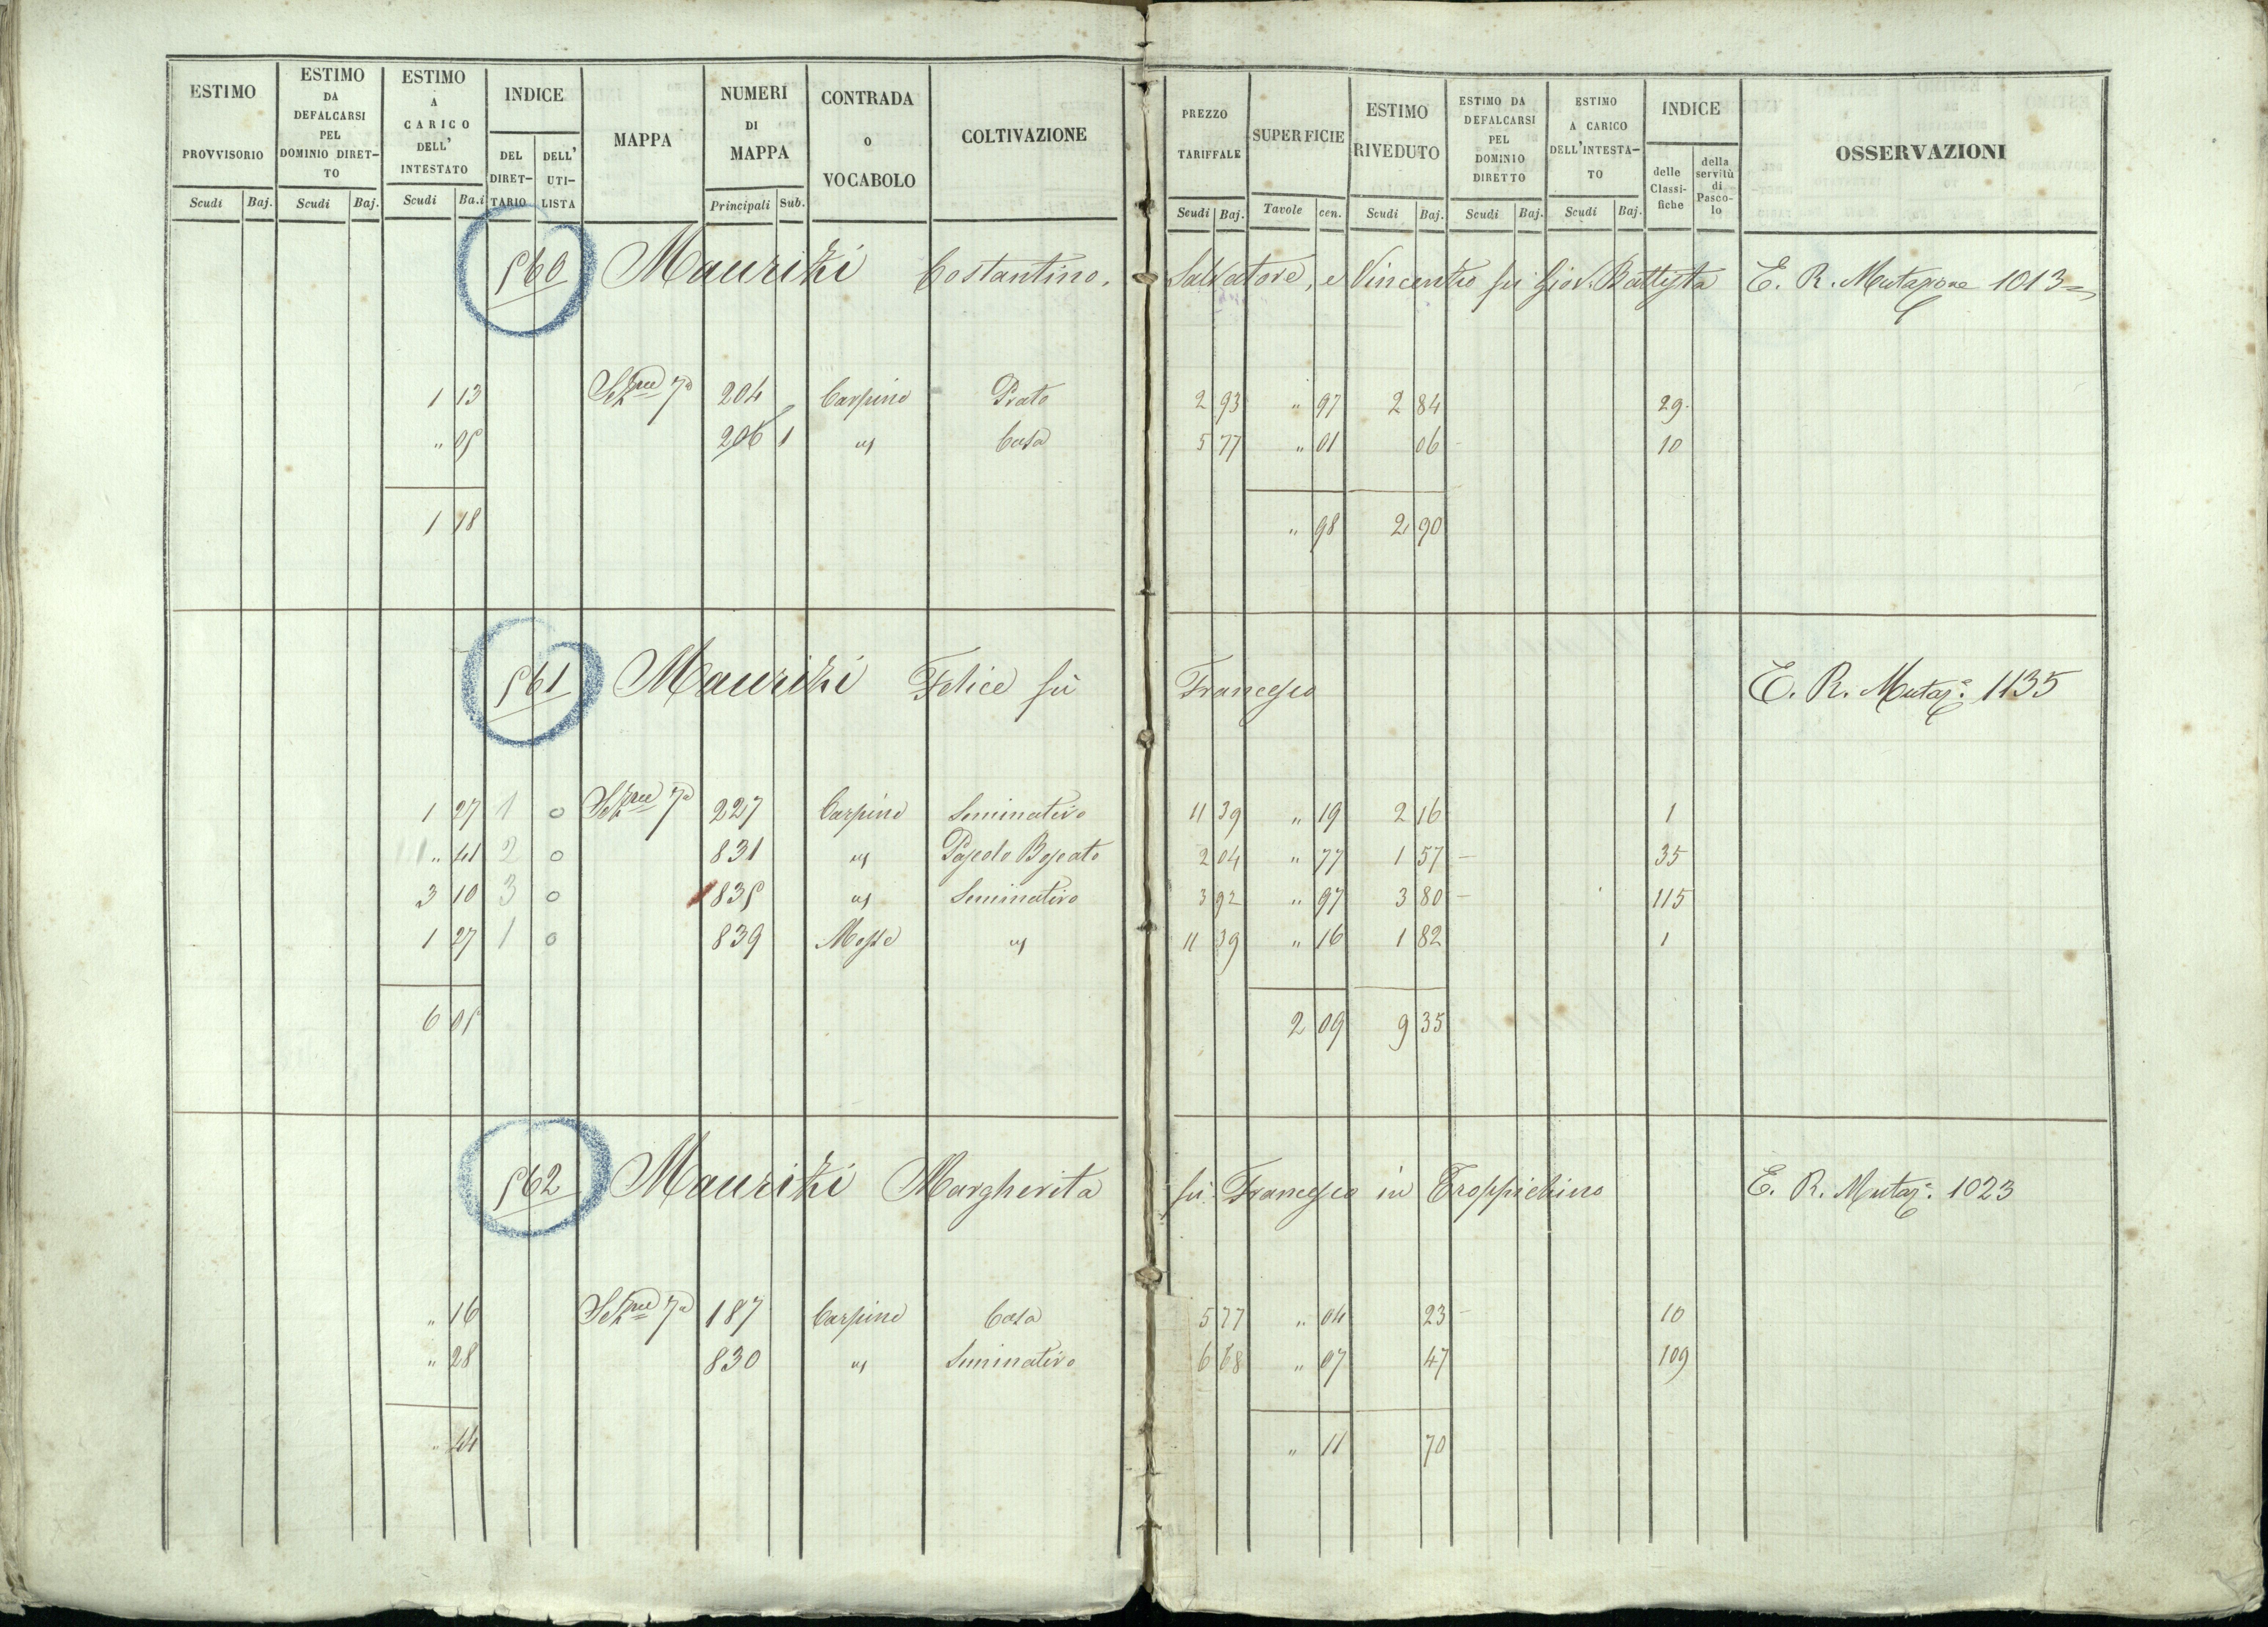 ESTIMO PROVVISORIO | ESTIMO DA DEFALCARSI PEL DOMINIO DIRET-TO | ESTIMO A CARICO DELL' INTESTATO | INDICE | MAPPA | NUMERI DI MAPPA | CONTRADA o VOCABOLO | COLTIVAZIONE | PREZZO TARIFFALE | SUPERFICIE | ESTIMO RIVEDUTO | ESTIMO DA DEFALCARSI PEL DOMINIO DIRETTO | ESTIMO A CARICO DELL'INTESTA-TO | INDICE | OSSERVAZIONI
DEL DIRET-TARIO | DELL' UTI-LISTA | delle Classi-fiche | della servitù di Pasco-lo
Scudi | Baj. | Scudi | Baj. | Scudi | Ba.i | Principali | Sub. | Scudi | Baj. | Tavole | cen. | Scudi | Baj. | Scudi | Baj. | Scudi | Baj.
560 Maurizi Costantino, Salvatore, e Vincenzo fu Giov. Battista E. R. Mutazione 1013=
1 13 Sezne 7a 204 Carpino Prato 2 93 " 97 2 84 29.
" 05 206 1 " Casa 5 77 " 01 06 - 10
1 18 " 98 2 90
561 Maurizi Felice fu Francesco E. R. Mutaze 1135
1 27 1 0 Sezne 7a 227 Carpino Seminativo 11 39 " 19 2 16 1
" 41 2 0 831 " Pascolo Boscato 2 04 " 77 1 57 - 35
3 10 3 0 835 " Seminativo 3 92 " 97 3 80 - 115
1 27 1 0 839 Mosse " 11 39 " 16 1 82 1
6 05 2 09 9 35
562 Maurizi Margherita fu Francesco in Troppichino E. R. Mutaze 1023
" 16 Sezne 7a 187 Carpino Casa 5 77 " 04 23 - 10
" 28 830 " Seminativo 6 68 " 07 47 109
" 44 " 11 70